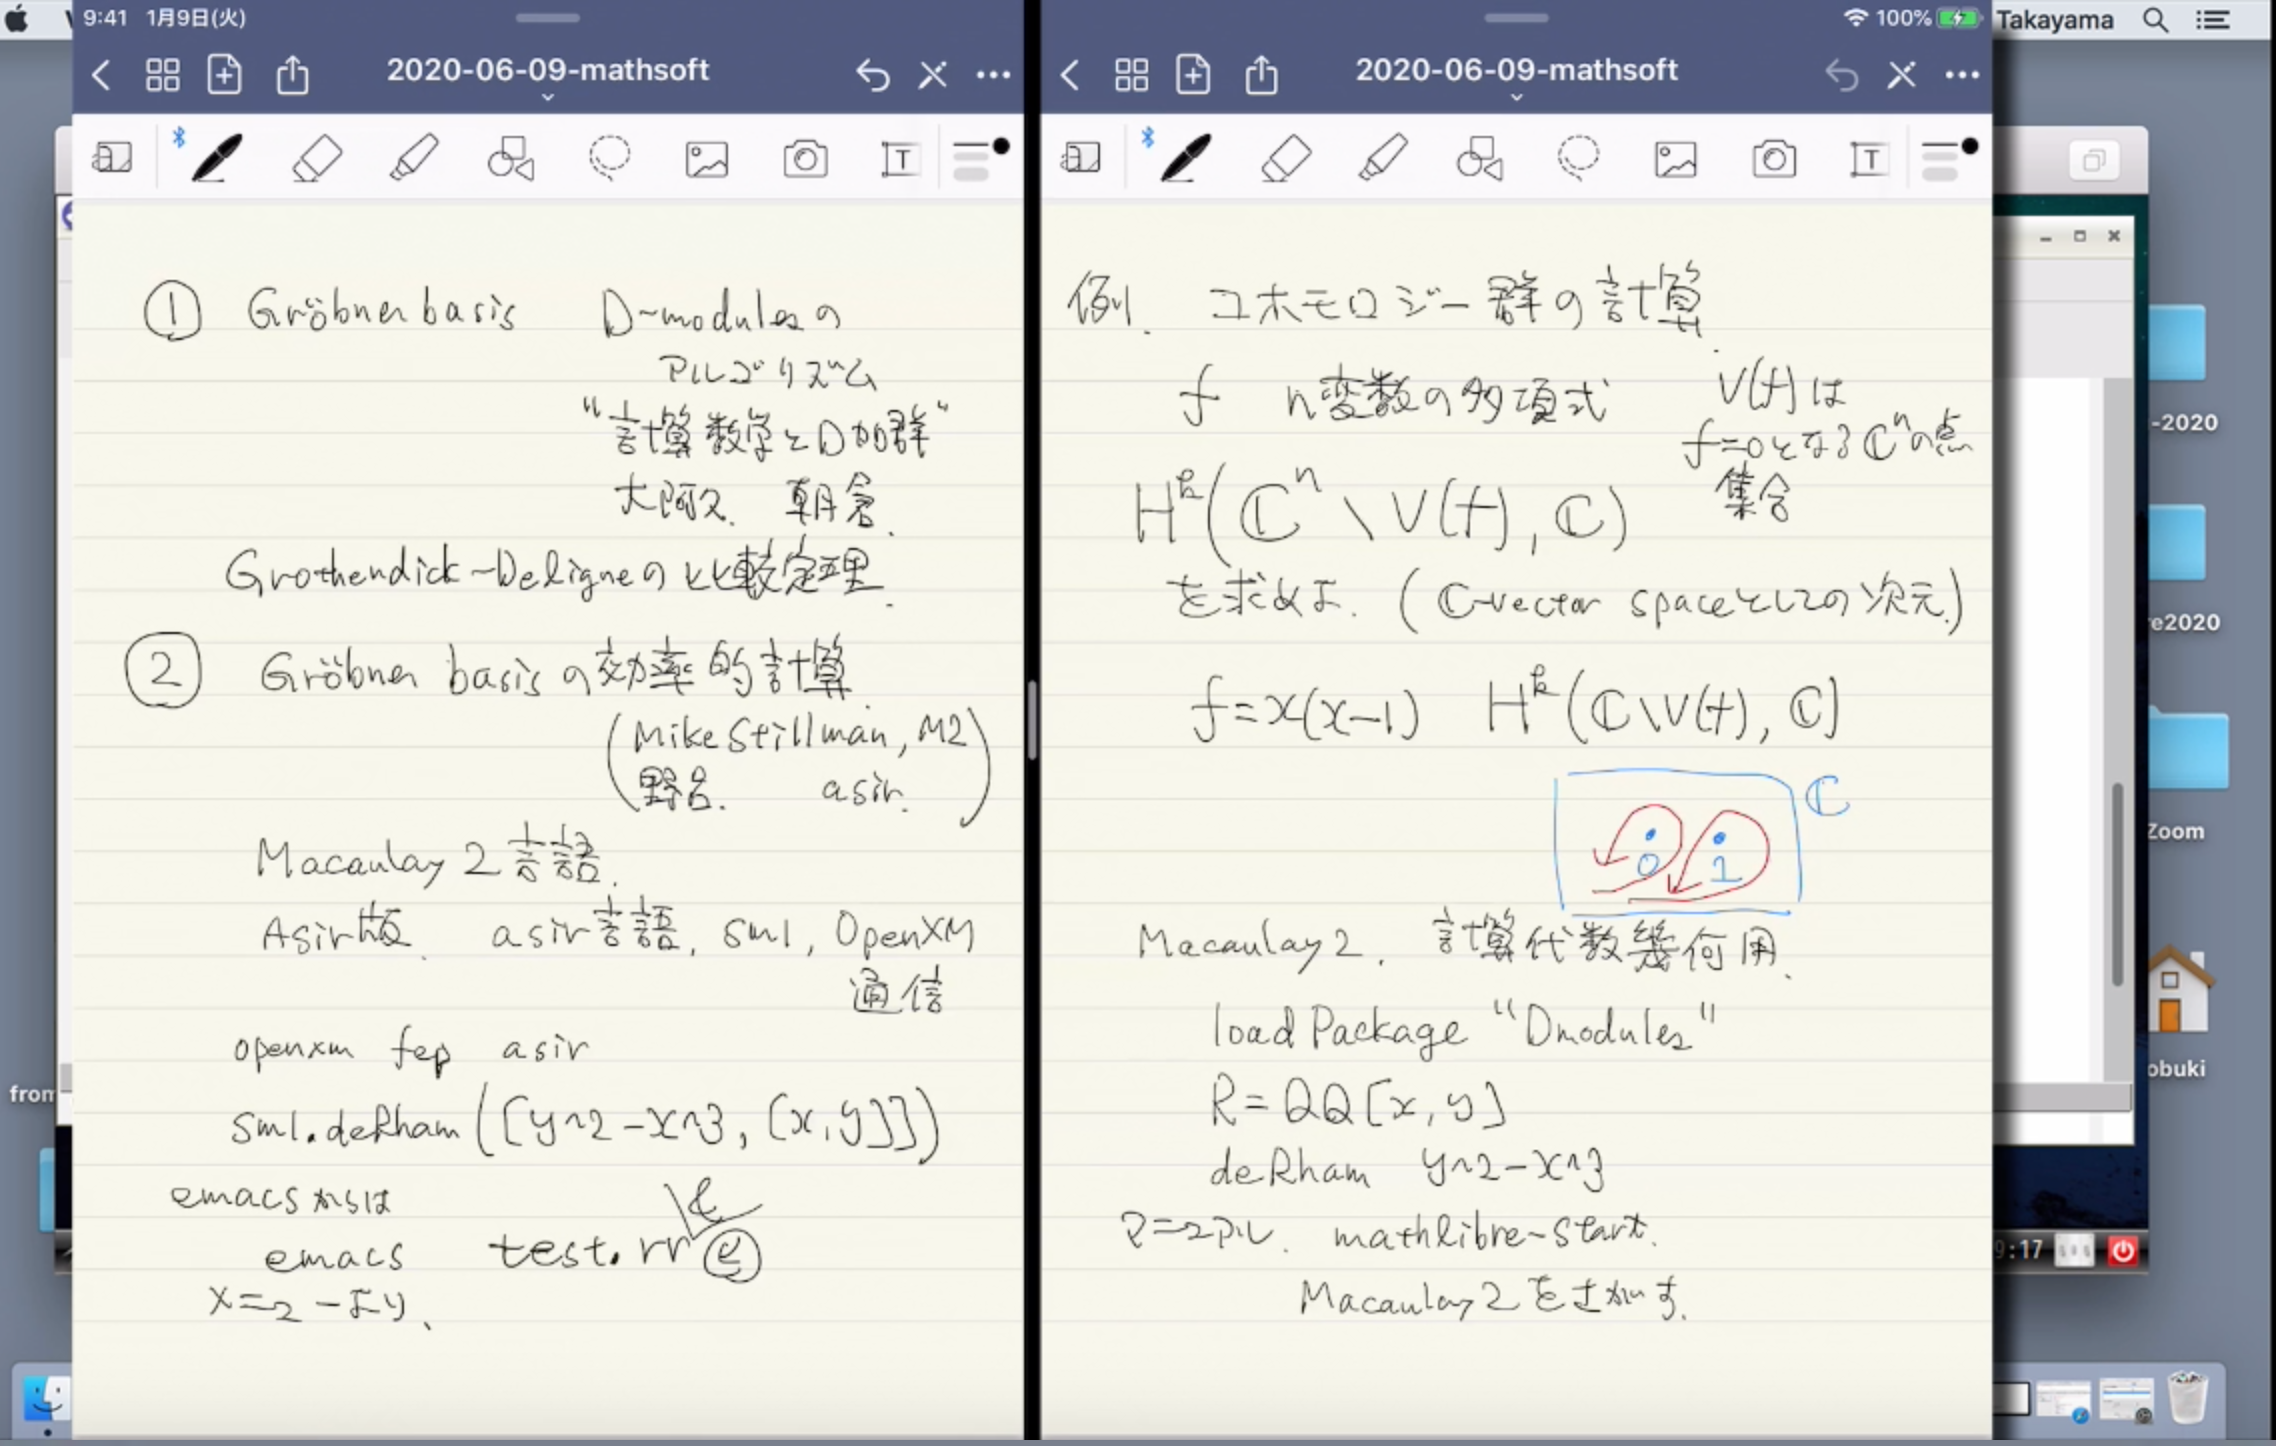 9:41 1月9日(火)
100%
Takayama
2020-06-09-mathsoft
① Gröbner basis D-modulesの
アルゴリズム
"計算数学とD加群"
大阿久. 朝倉.
Grothendick-Deligneの比較定理.
② Gröbner basisの効率的計算.
(Mike Stillman, M2
野呂. asir.)
Macaulay 2 言語.
Asir版. asir言語, sm1, OpenXM
通信
openxm fep asir
sm1.deRham([y^2-x^3, [x,y]])
emacsからは
emacs test.rr
メニューより、
2020-06-09-mathsoft
例. コホモロジー群の計算.
f n変数の多項式
V(f)は
f=0となるℂⁿの点
集合
Hᵏ(ℂⁿ \ V(f), ℂ)
を求めよ. (ℂ-vector spaceとしての次元.)
f=x(x-1) Hᵏ(ℂ\V(f), ℂ)
ℂ
0 1
Macaulay2. 計算代数幾何用.
load Package "Dmodules"
R=QQ[x,y]
deRham y^2-x^3
マニュアル. mathlibre-start.
Macaulay2をさがす.
-2020
e2020
Zoom
obuki
from
9:17